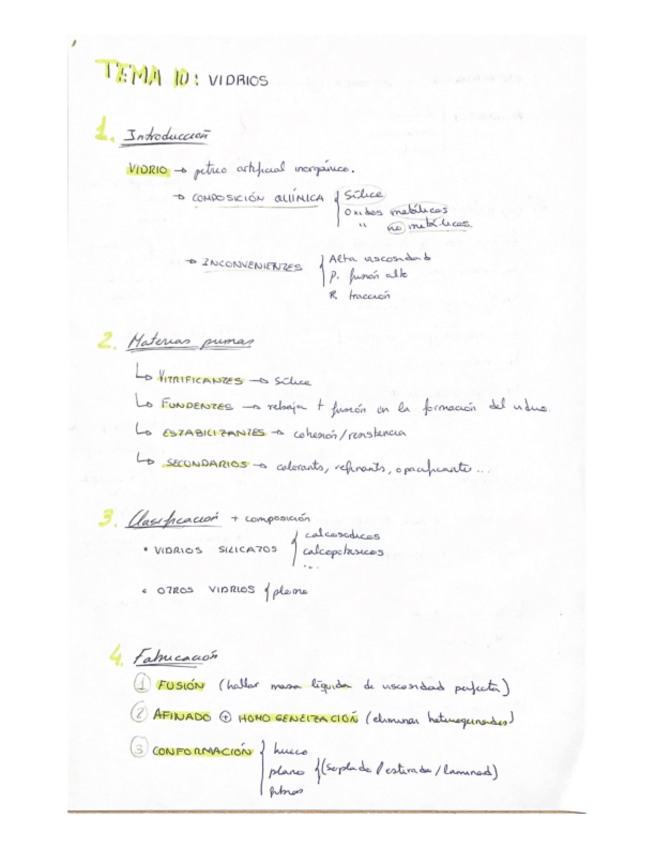 TEMA 10: VIDRIOS
1. Introducción
VIDRIO → petreo artificial inorgánico.
→ COMPOSICIÓN QUÍMICA { Sílice
Oxidos metálicos
" no metálicos
→ INCONVENIENTES { Alta viscosidad
P. fusión alto
R tracción
2. Materias primas
↳ VITRIFICANTES → Sílice
↳ FUNDENTES → rebajar t fusión en la formación del vidrio.
↳ ESTABILIZANTES → cohesión/resistencia
↳ SECUNDARIOS → colorants, refinants, opacificante...
3. Clasificación + composición
• VIDRIOS SILICATOS { calcosódicos
calcopotásicos
...
• OTROS VIDRIOS { plomo
4. Fabricación
① FUSIÓN (hallar masa líquida de viscosidad perfecta)
② AFINADO ⊕ HOMOGENEIZACIÓN (eliminar heterogeneidades)
③ CONFORMACIÓN { hueco
plano { (soplado/estirado/laminad)
fibras